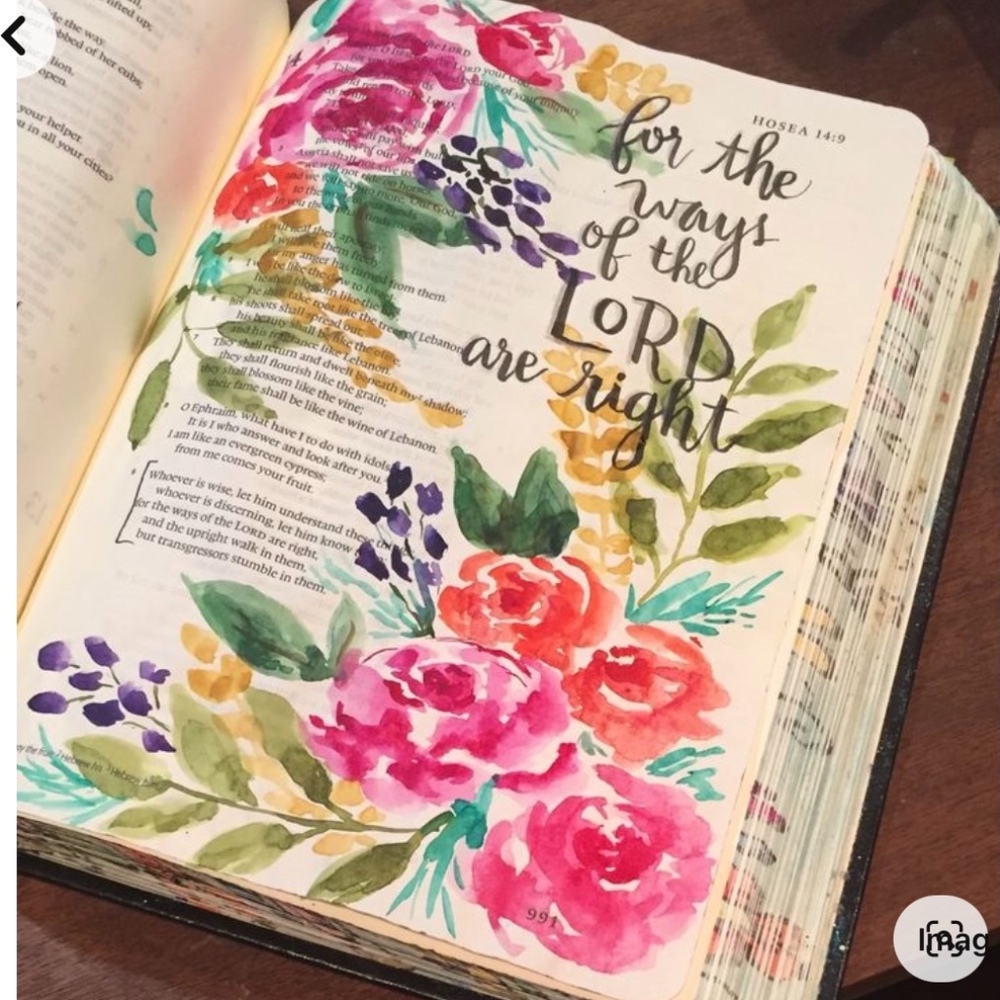 lifted up,
beside the way.
robbed of her cubs;
lion,
open.
your helper.
in all your cities?
HOSEA 14:9
for the
ways
of the
LORD
are right
the LORD
LORD your God,
because of your iniquity.
to the LORD;
Assyria shall not save us;
we will not ride on horses;
and we will say no more, 'Our God,'
to the
I will heal their apostasy;
I will love them freely,
for my anger has turned from them.
I will be like the dew to
he shall blossom like the
he shall take root like the trees of Lebanon;
his shoots shall spread out;
his beauty shall be like the olive,
and his fragrance like Lebanon.
They shall return and dwell beneath my shadow;
they shall flourish like the grain;
they shall blossom like the vine;
their fame shall be like the wine of Lebanon.
O Ephraim, what have I to do with idols
It is I who answer and look after you.
I am like an evergreen cypress;
from me comes your fruit.
Whoever is wise, let him understand these
whoever is discerning, let him know
for the ways of the LORD are right,
and the upright walk in them,
but transgressors stumble in them.
Hebrew his Hebrew
991
Imag